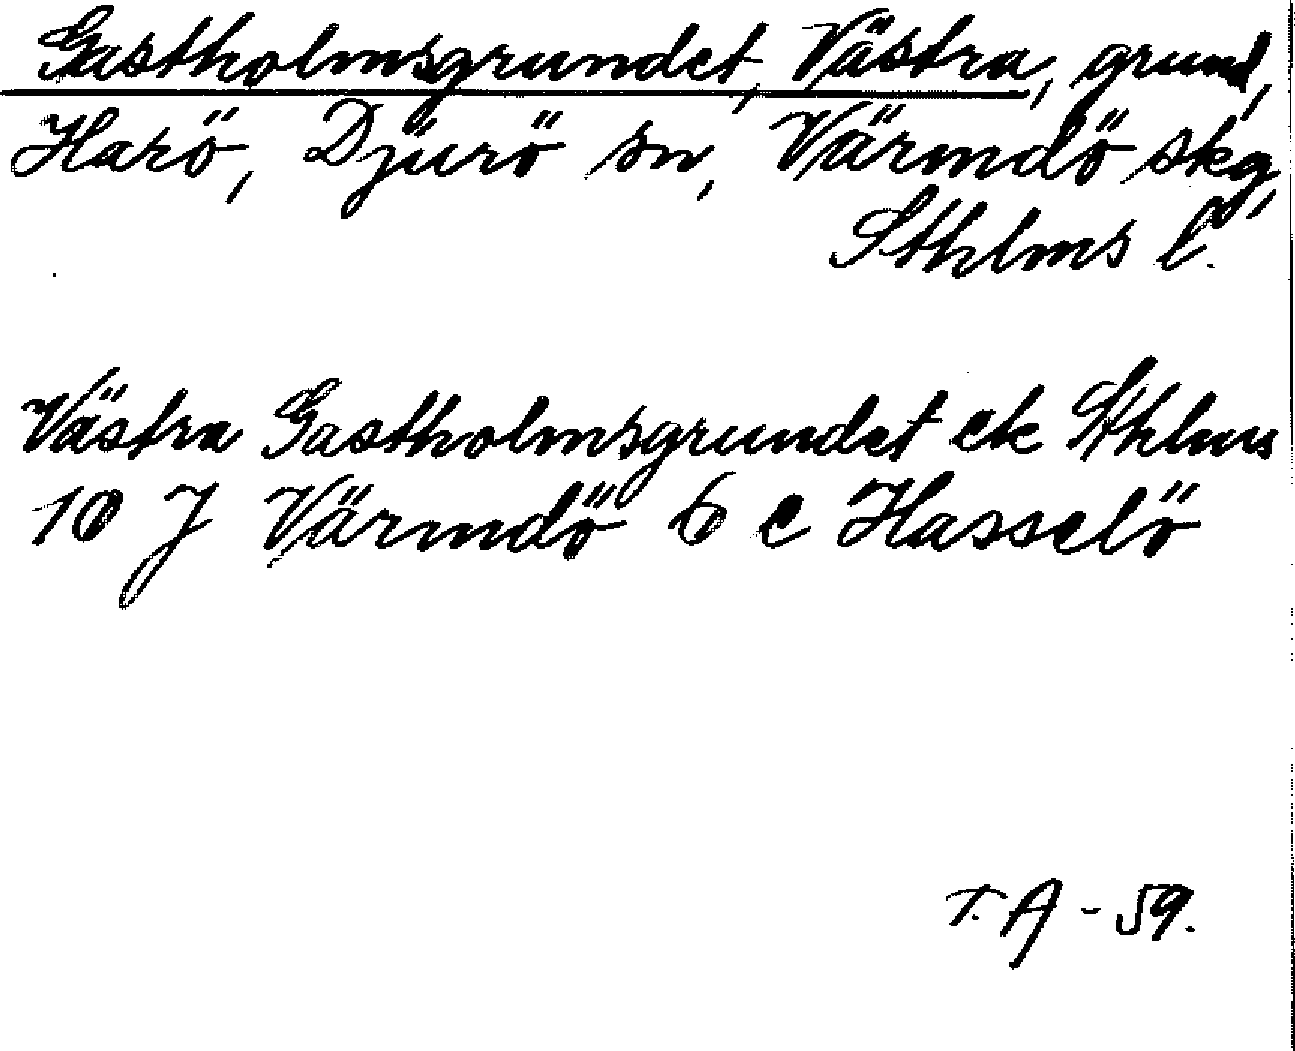 Gastholmsgrundet, Västra, grund,
Harö, Djurö sn, Värmdö skg,
Sthlms l.
Västra Gastholmsgrundet ek Sthlms
10 J Värmdö 6 c Hasselö
T. A - 59.